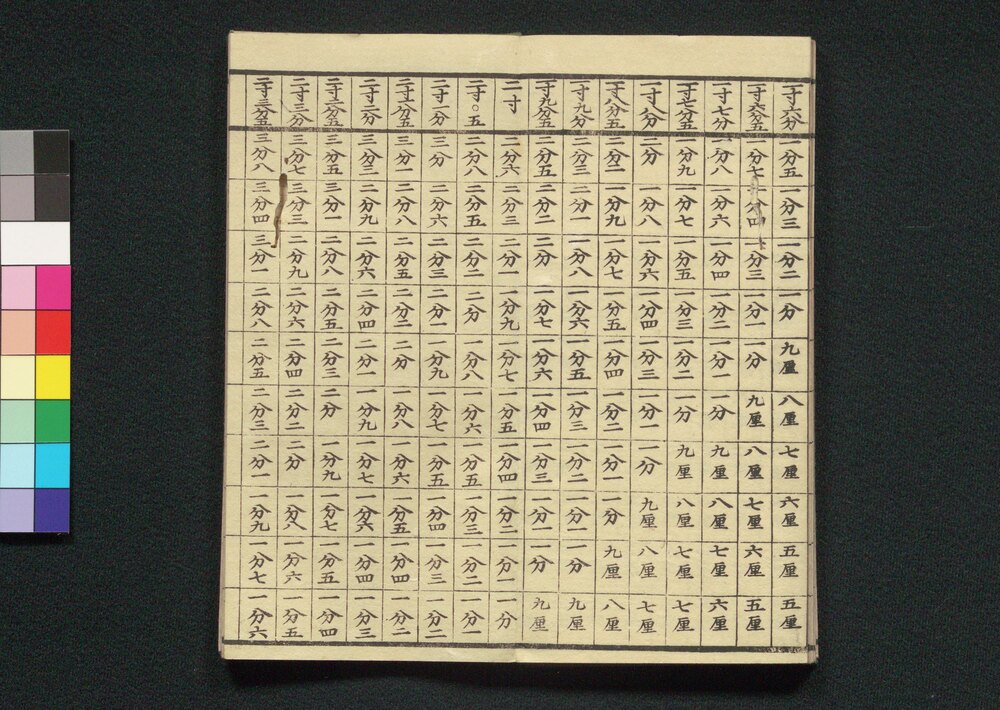 一寸六分 一分五 一分三 一分二 一分 九厘 八厘 七厘 六厘 五厘 五厘
一寸六分五 一分七 一分四 一分三 一分一 一分 九厘 八厘 七厘 六厘 五厘
一寸七分 一分八 一分六 一分四 一分二 一分一 一分 九厘 八厘 七厘 六厘
一寸七分五 一分九 一分七 一分五 一分三 一分二 一分 九厘 八厘 七厘 七厘
一寸八分 二分 一分八 一分六 一分四 一分三 一分一 一分 九厘 八厘 七厘
一寸八分五 二分二 一分九 一分七 一分五 一分四 一分二 一分一 一分 九厘 八厘
一寸九分 二分三 二分一 一分八 一分六 一分五 一分三 一分二 一分一 一分 九厘
一寸九分五 二分五 二分二 二分 一分七 一分六 一分四 一分三 一分一 一分 九厘
二寸 二分六 二分三 二分一 一分九 一分七 一分五 一分四 一分二 一分一 一分
二寸○五 二分八 二分五 二分二 二分 一分八 一分六 一分五 一分三 一分二 一分一
二寸一分 三分 二分六 二分三 二分一 一分九 一分七 一分五 一分四 一分三 一分二
二寸一分五 三分一 二分八 二分五 二分二 二分 一分八 一分六 一分五 一分四 一分二
二寸二分 三分三 二分九 二分六 二分四 二分一 一分九 一分七 一分六 一分四 一分三
二寸二分五 三分五 三分一 二分八 二分五 二分三 二分 一分九 一分七 一分五 一分四
二寸三分 三分七 三分三 二分九 二分六 二分四 二分二 二分 一分八 一分六 一分五
二寸三分五 三分八 三分四 三分一 二分八 二分五 二分三 二分一 一分九 一分七 一分六